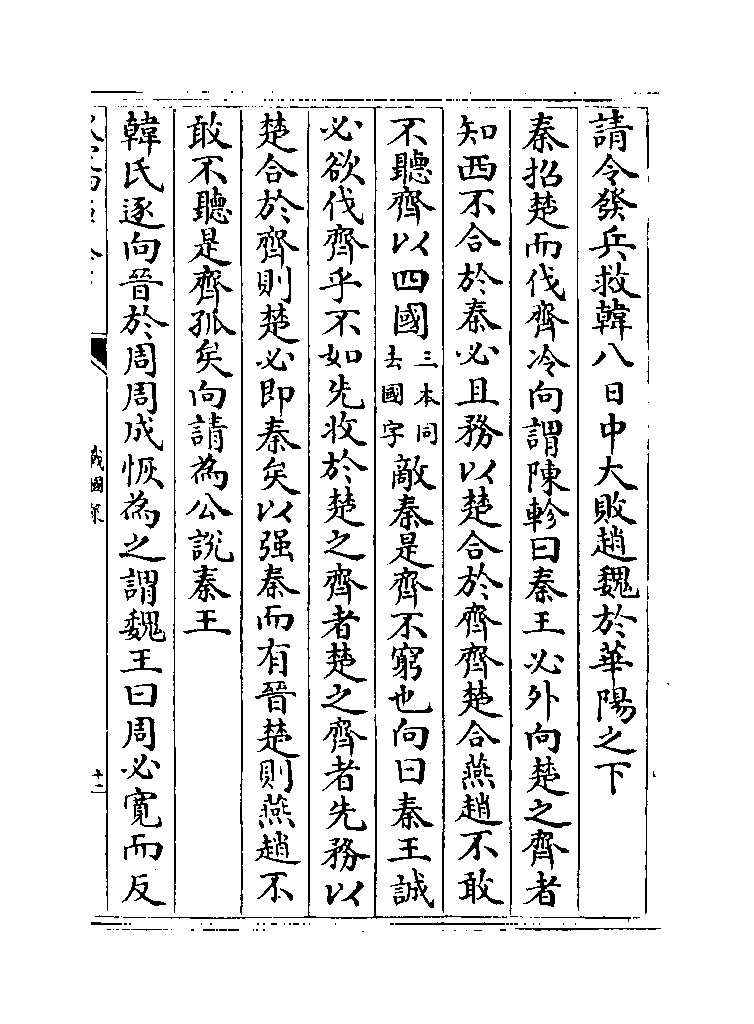 請令發兵救韓八日中大敗趙魏於華陽之下
秦招楚而伐齊冷向謂陳軫曰秦王必外向楚之齊者
知西不合於秦必且務以楚合於齊齊楚合燕趙不敢
不聽齊以四國三本同去國字敵秦是齊不窮也向曰秦王誠
必欲伐齊乎不如先收於楚之齊者楚之齊者先務以
楚合於齊則楚必即秦矣以强秦而有晉楚則燕趙不
敢不聽是齊孤矣向請為公說秦王
韓氏逐向晉於周周成恢為之謂魏王曰周必寛而反
戰國策
十一